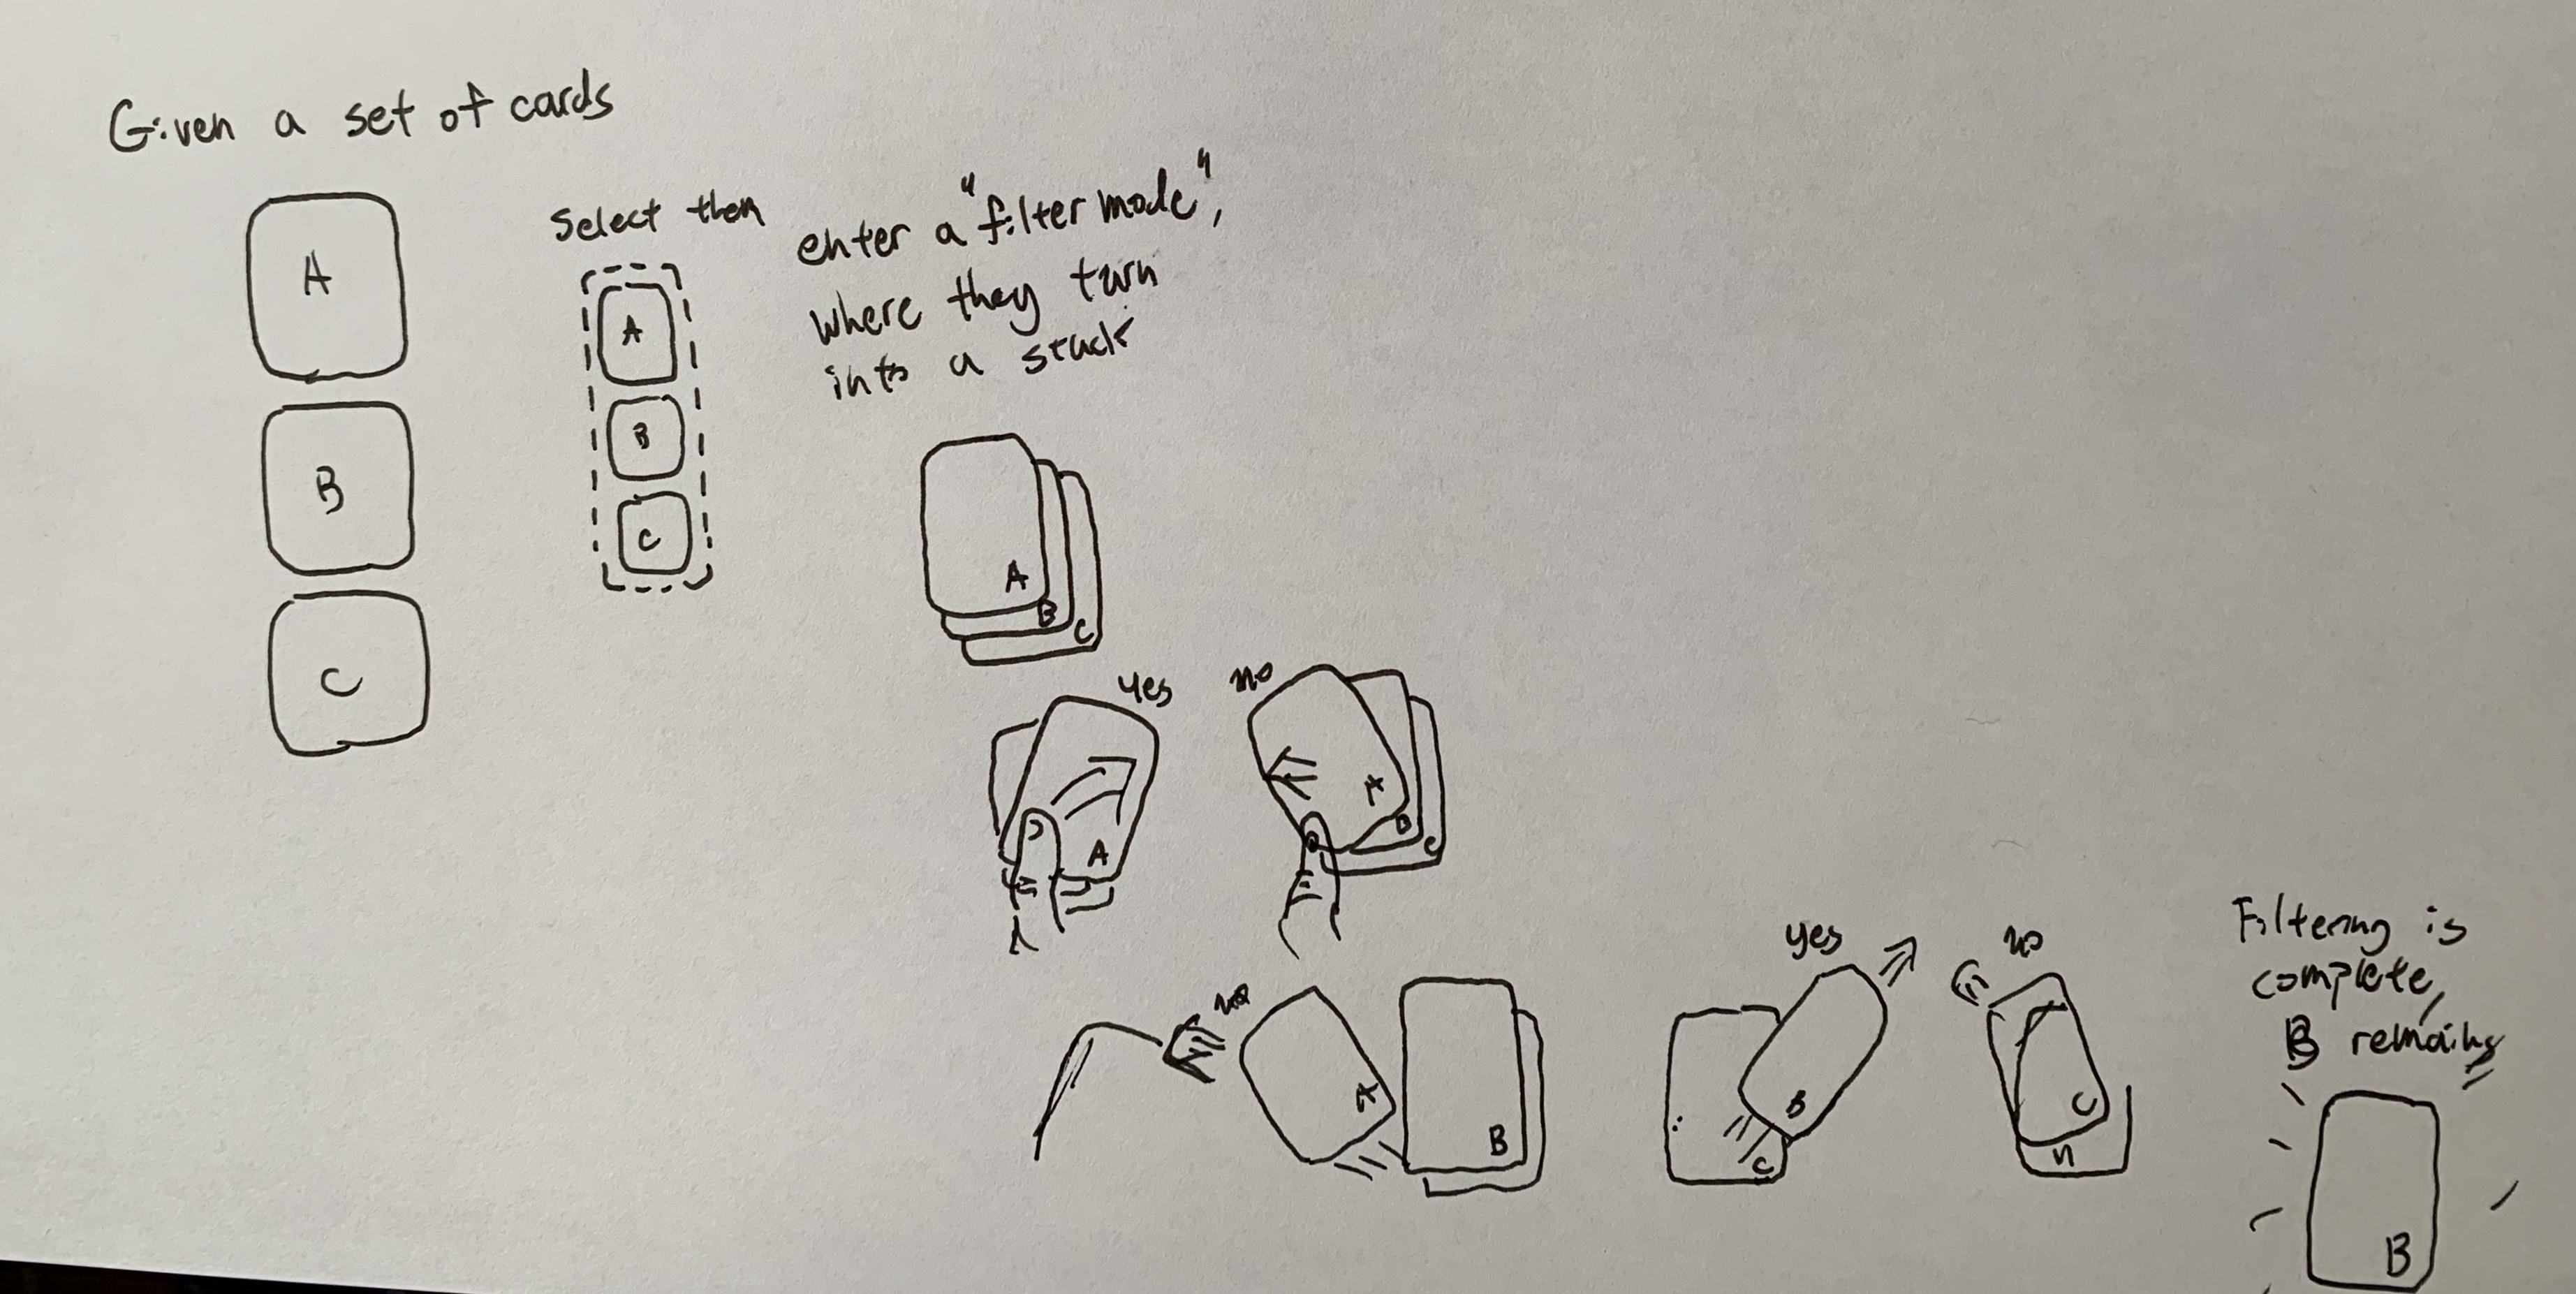 Given a set of cards
A
B
C
Select them
A
B
C
enter a "filter mode",
where they turn
into a stack
A
B
C
yes
A
no
A
B
C
no
A
B
yes
B
C
no
C
n
Filtering is
complete,
B remains
B